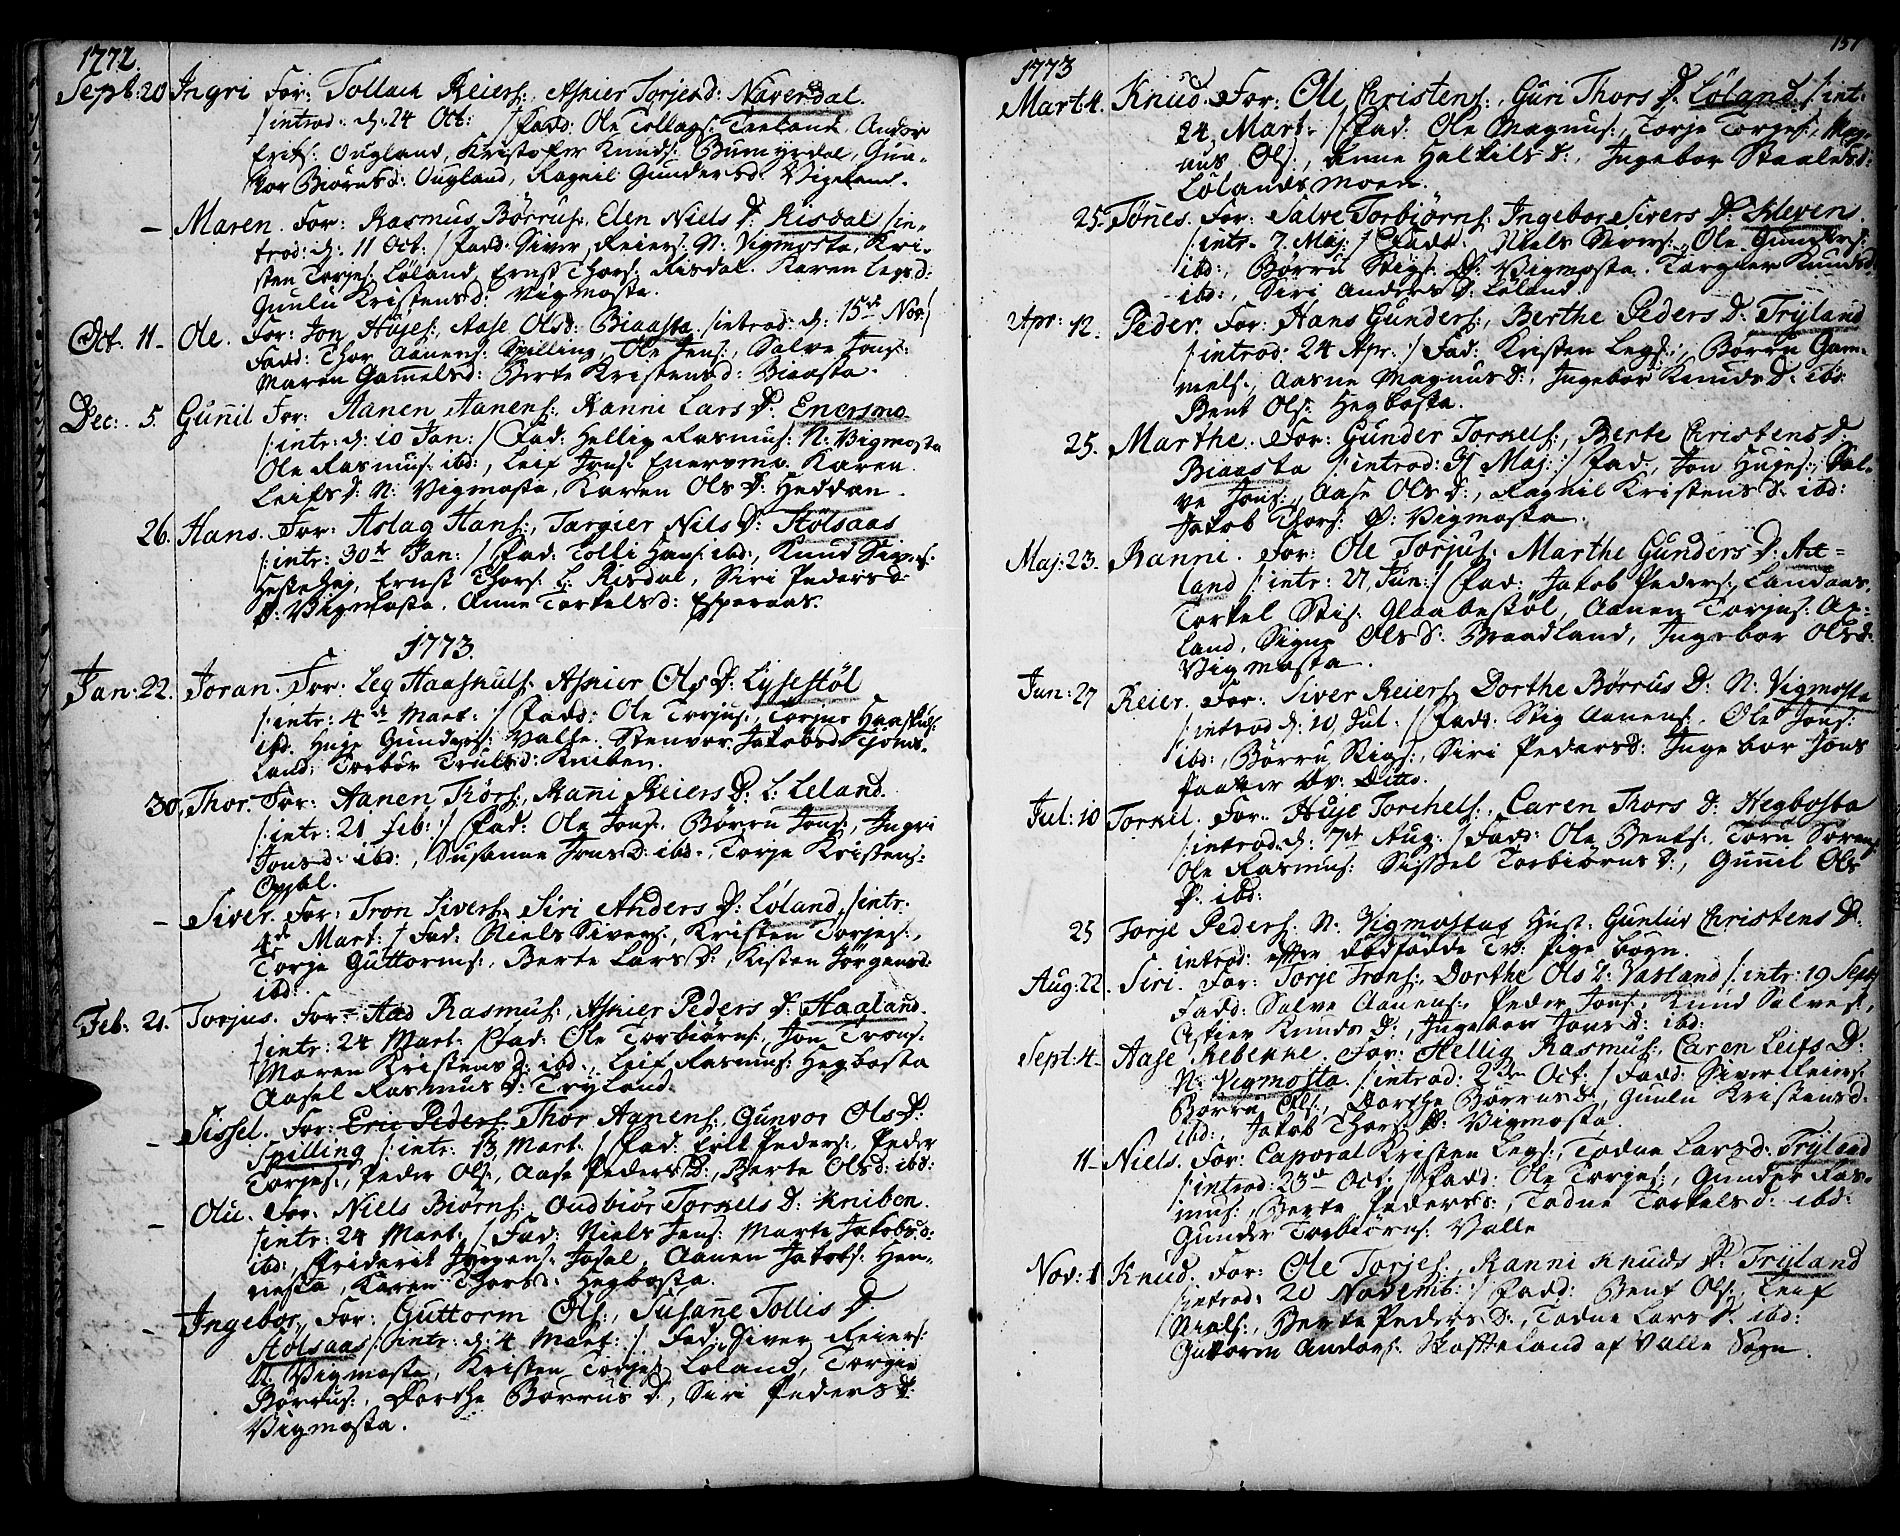 1772.
Sept: 20 Ingri For: Tollach Reiers:, Asnier Torjesd: Naverdal.
/:introd: d: 24 Oct: :/ Fadd: Ole Tollags: Treland, Ander
Erits: Ougland, Kristofer Knuds: Bumyrdal, Gun-
vor Biörnsd: Ougland, Ragnil Gundersd: Vigeland.
– Maren. For: Rasmus Börrus:, Elen Niels D: Risdal /:in-
trod: d: 11 Oct. :/ Fadd: Siver Reiers: N: Vigmosta, Kri-
sten Torjes: Löland, Ernst Thors: Risdal. Karen Legsd:
Gunlu Kristensd: Vigmosta.
Oct. 11- Ole. For: Jon Hujes:, Aase Olsd: Biaasta. /:introd: d: 15de Nov:/
Fadd: Thor Aanens: Spilling, Ole Jens:, Salve Jons:
Maren Gamelsd: Berte Kristensd: Biaasta.
Dec: 5. Gunil For: Aanen Aanens:, Ranni Lars D: Enersmo
/:intr: d: 10 Jan: :/ Fad: Hellig Rasmus: N: Vigmosta
Ole Rasmus: ibd:, Leif Jons: Enersmo. Karen
Leifs D: N: Vigmosta, Karen Ols D: Heddan.
26. Hans. For: Aslag Hans:, Targier Nils D: Stölsaas
/:intr: 30te Jan: :/ Fad: Tolli Hans: ibd:, Knud Signes:
Hestehag, Ernst Thors: L: Risdal, Siri Pedersd:
Ø: Vigmosta. Anne Torkelsd: Esperaas.
1773.
Jan: 22. Joran. For: Leg Haaskuls:, Asnier Ols D: Lysestöl
/:intr: 4de Mart: :/ Fadd: Ole Torjus:, Torjus Haaskuls:
ibd. Huge Gunders: Valse. Stenvor Jakobsd: Tjoms-
land, Torbör Trulsd: Kniben.
30. Thor. For: Aanen Thors:, Rani Reiers D: L: Leland.
/:intr: 21 Feb: :/ Fad: Ole Jons:, Börru Jons:, Ingri
Jonsd: ibd:, Susanne Jons D: ibd., Torje Kristens:
Opsal.
– Siver. For: Tron Sivers:, Siri Anders D: Löland, /:intr:
4de Mart: :/ Fad: Niels Sivers:, Kristen Torjes:,
Torje Guttorms:, Berte Lars D:, Kisten Jörgensd:
ibd:
Feb: 21. Torjus. For: Aad Rasmus:, Asnier Peders D: Haaland.
/:intr: 24 Mart. :/ Fad: Ole Torbiörns:, Jon Trons:
Maren Kristens D: ibd., Leif Rasmus: Hegbosta
Aasel Rasmus D: Tryland.
– Sissel. For: Eric Peders: Thor Aanens:, Gunvor Ols D:
Spilling /:intr: 13 Mart. :/ Fad: Erik Peders:, Peder
Torjes:, Peder Ols:, Aase Peders D:, Berte Olsd: ibd:
– Olu. For: Niels Biörns:, Oudbiör Torkels D: Kniben.
/:intr: 24 Mart. :/ Fad: Niels Jens: Marte Jakobsd:
ibd:, Friderik Jörgens: Josal, Aanen Jakobs: Hen-
nesta, Karen Thorsd: Hegbosta.
– Ingebor. For: Guttorm Ols:, Susane Tollis D:
Stölsaas /:intr: d: 4 Mart: :/ Fad: Siver Reiers:
N: Vigmosta, Kristen Torjes: Löland, Torgie
Börrus:, Dorthe Börrus D:, Siri Peders D:
Vigmosta.
1773
151
Mart: 4. Knud. For: Ole Christens:, Guri Thors D: Löland. /:int:
24 Mart. :/ Fad: Ole Magnus:, Torje Torjes:, Mag-
nus Ols:, Anne Halkils D:, Ingebor Staalesd:
Lölandsmoen.
25. Tönes. For: Salve Torbiörns: Ingebor Sivers D: Kleven.
/:intr. 7. Maj: :/ Fadd: Niels Sivers:, Ole Gunders:
ibd:, Börru Stigs: Ø: Vigmosta. Torgier Knudsd:
ibd:, Siri Anders D: Löland.
Apr: 12. Peder. For: Hans Gunders:, Berthe Peders D: Tryland
/:introd: 24 Apr. :/ Fad: Kristen Legs:, Börru Gam-
mels:, Aasne Magnus D:, Ingebor Knuds D: ibd:
Bent Ols: Hegbosta.
25. Marthe. For: Gunder Torkels:, Berte Christens D:
Biaasta /:introd: 31 Maj: :/ Fad, Jon Hujes:, Sal-
ve Jons:, Aase Ols D:, Ragnil Kristens D: ibd:
Jakob Thors: Ø: Vigmosta.
Maj: 23. Ranne. For: Ole Torjus:, Marthe Gunders D: Ax=
land /:intr: 27, Jun: :/ Fad: Jakob Peders: Landaas,
Torkel Stis: Glaabestöl, Aanen Torjus: Ax-
land, Signe Ols D: Braadland, Ingebor Olsd:
Vigmosta.
Jun: 27 Reier. For: Siver Reiers:, Dorthe Börrus D: N: Vigmosta
/:introd: d: 10, Jul: :/ Fadd: Stig Aanens:, Ole Jons:
ibd:, Börru Stigs:, Siri Pedersd: Ingebor Jons
Jul: 10 Torkel. For: Huje Torchels:, Caren Thors D: Hegbosta
/:introd: d: 7de Aug: :/ Fadd: Ole Bents:, Tore Sörens:
Ole Rasmus: Sissel Torbiörns D:, Gunnil Ols
D: ibd:
25 Torje Peders: N: Vigmostas Hust: Gunlu Christens D:
introd: efter dödfödde Tv: Pige börn.
Aug: 22. Siri. For: Torje Trons:, Dorthe Ols D: Vatland /:intr: 19 Sept:
Fadd: Salve Aanens:, Peder Jons:, Knud Salves:,
Astier Knuds D:, Ingebor Jons D: ibd:
Sept: 4. Aase Rebekke. For: Hellig Rasmus:, Caren Leifs D:
N: Vigmosta. /:introd: 2den Oct: :/ Fadd: Siver Reiers:
Börru Ols:, Dorthe Börrusd:, Gunlu Kristensd.
ibd:, Jakob Thors: Ø: Vigmosta.
11- Niels. For: Caporal Kristen Legs:, Todne Larsd: Tryland
/:introd: 23de Oct: :/ Fadd: Ole Torjes:, Gunder Ras-
mus:, Berte Pedersd:, Todne Torkelsd: ibd:
Gunder Torbiörns: Valle
Nov: 1 Knud. For: Ole Torjes:, Ranni Knuds D: Tryland
/:introd: 20 Novemb: :/ Fadd: Bent Ols:, Leif
Niels:, Berte Peders D:, Todne Lars D: ibd:
Gutorm Anders: Skofteland af Valle Sogn.